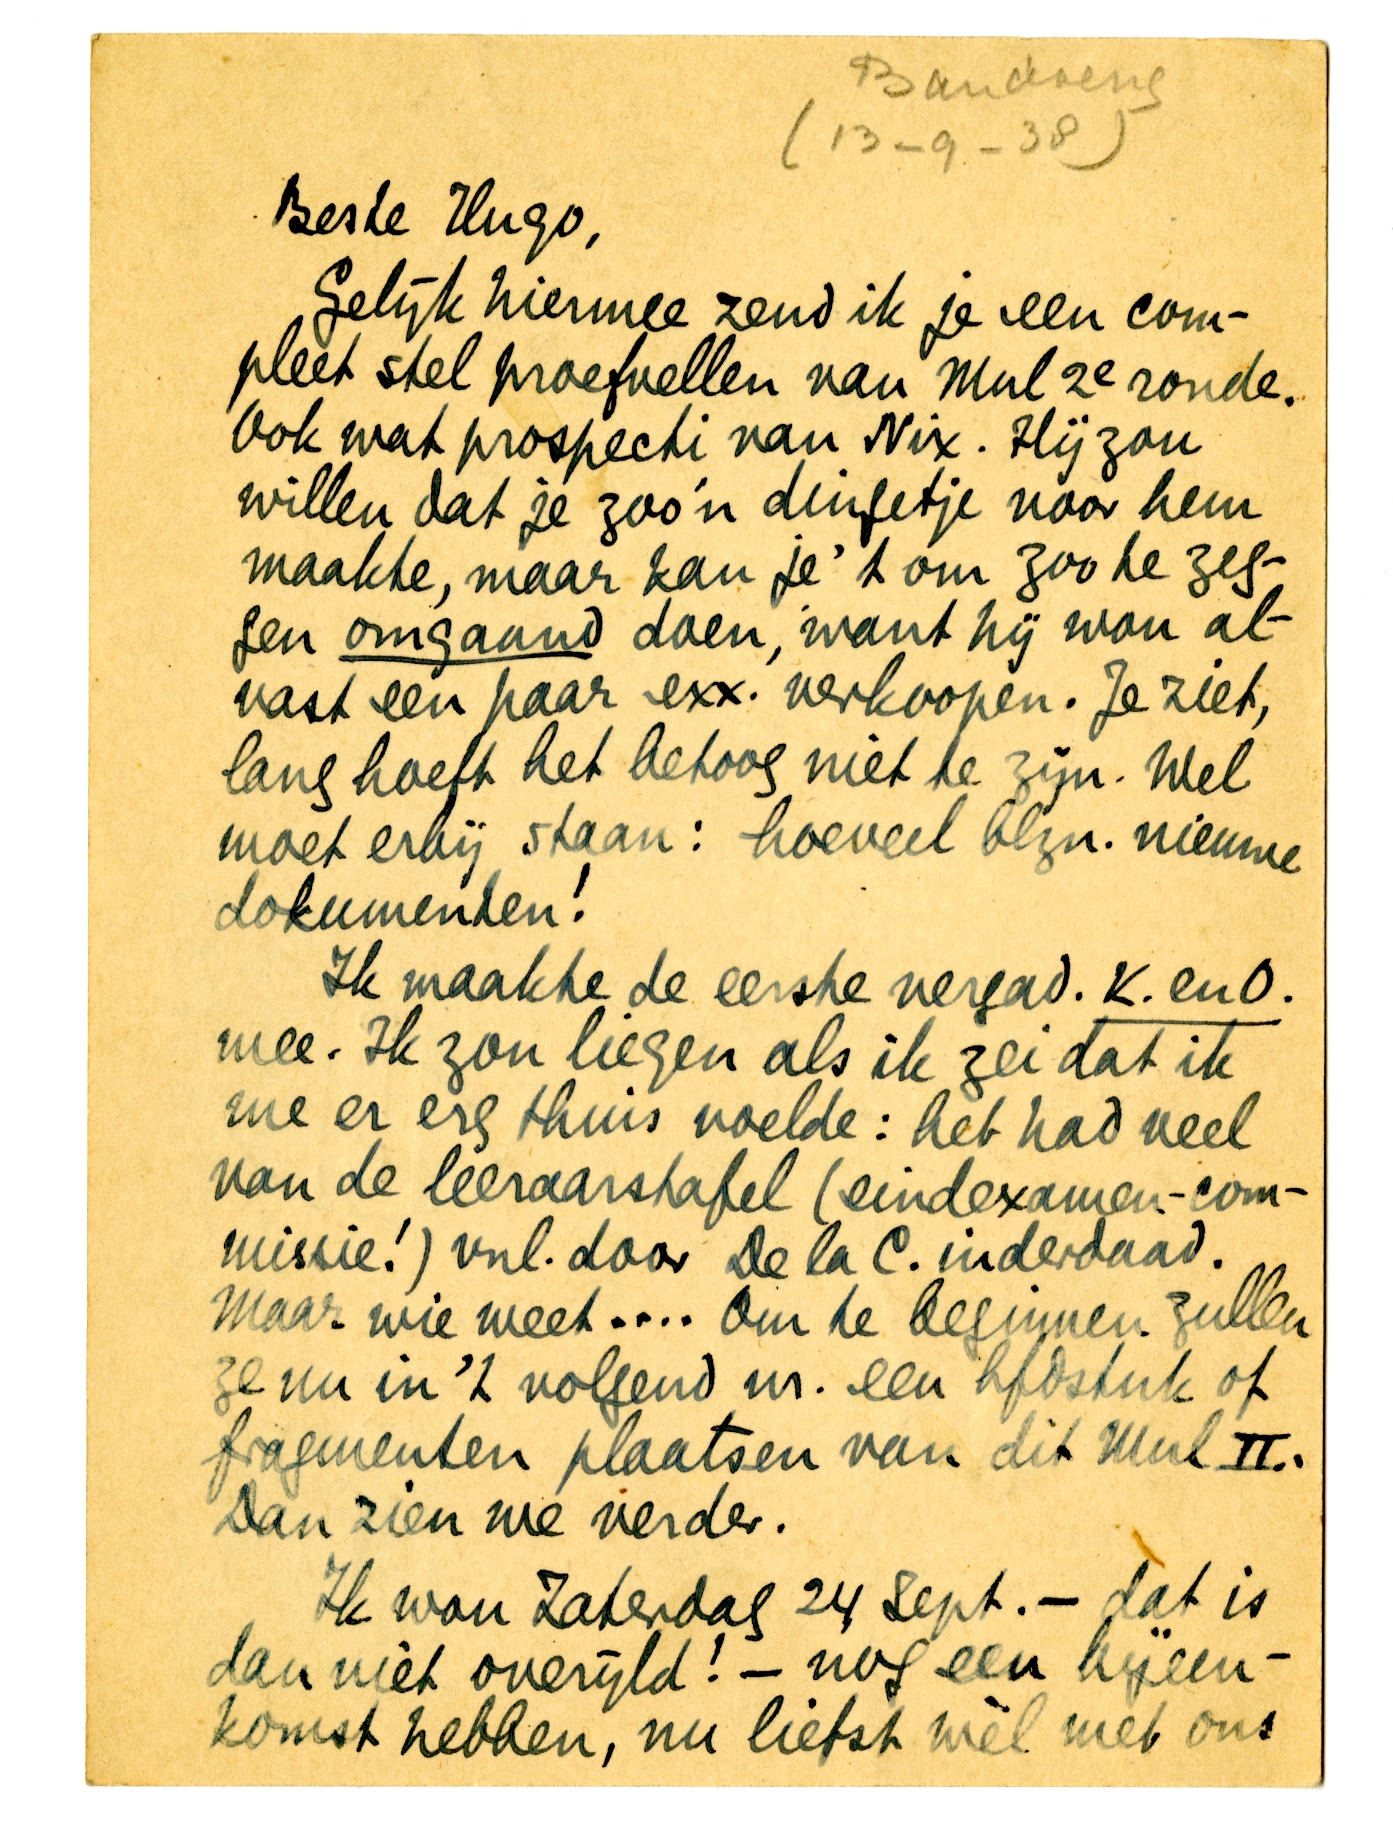 Bandoeng
(13-9-38)
Beste Hugo,
Gelijk hiermee zend ik je een com-
pleet stel proefvellen van Mul 2e ronde.
Ook wat prospecti van Nix. Hij zou
willen dat je zoo'n dingetje voor hem
maakte, maar kan je 't om zoo te zeg-
gen omgaand doen, want hij wou al-
vast een paar exx. verkoopen. Je ziet,
lang hoeft het betoog niet te zijn. Wel
moet erbij staan: hoeveel blzn. nieuwe
dokumenten!
Ik maakte de eerste vergad. K. en O.
mee. Ik zou liegen als ik zei dat ik
me er erg thuis voelde: het had veel
van de leeraarstafel (eindexamen-com-
missie!) vnl. door De la C. inderdaad.
Maar wie weet.... Om te beginnen zullen
ze nu in 't volgend nr. een hfdstuk of
fragmenten plaatsen van dit Mul II.
Dan zien we verder.
Ik wou Zaterdag 24 Sept. — dat is
dan niet overijld! — nog een bijeen-
komst hebben, nu liefst wèl met ons